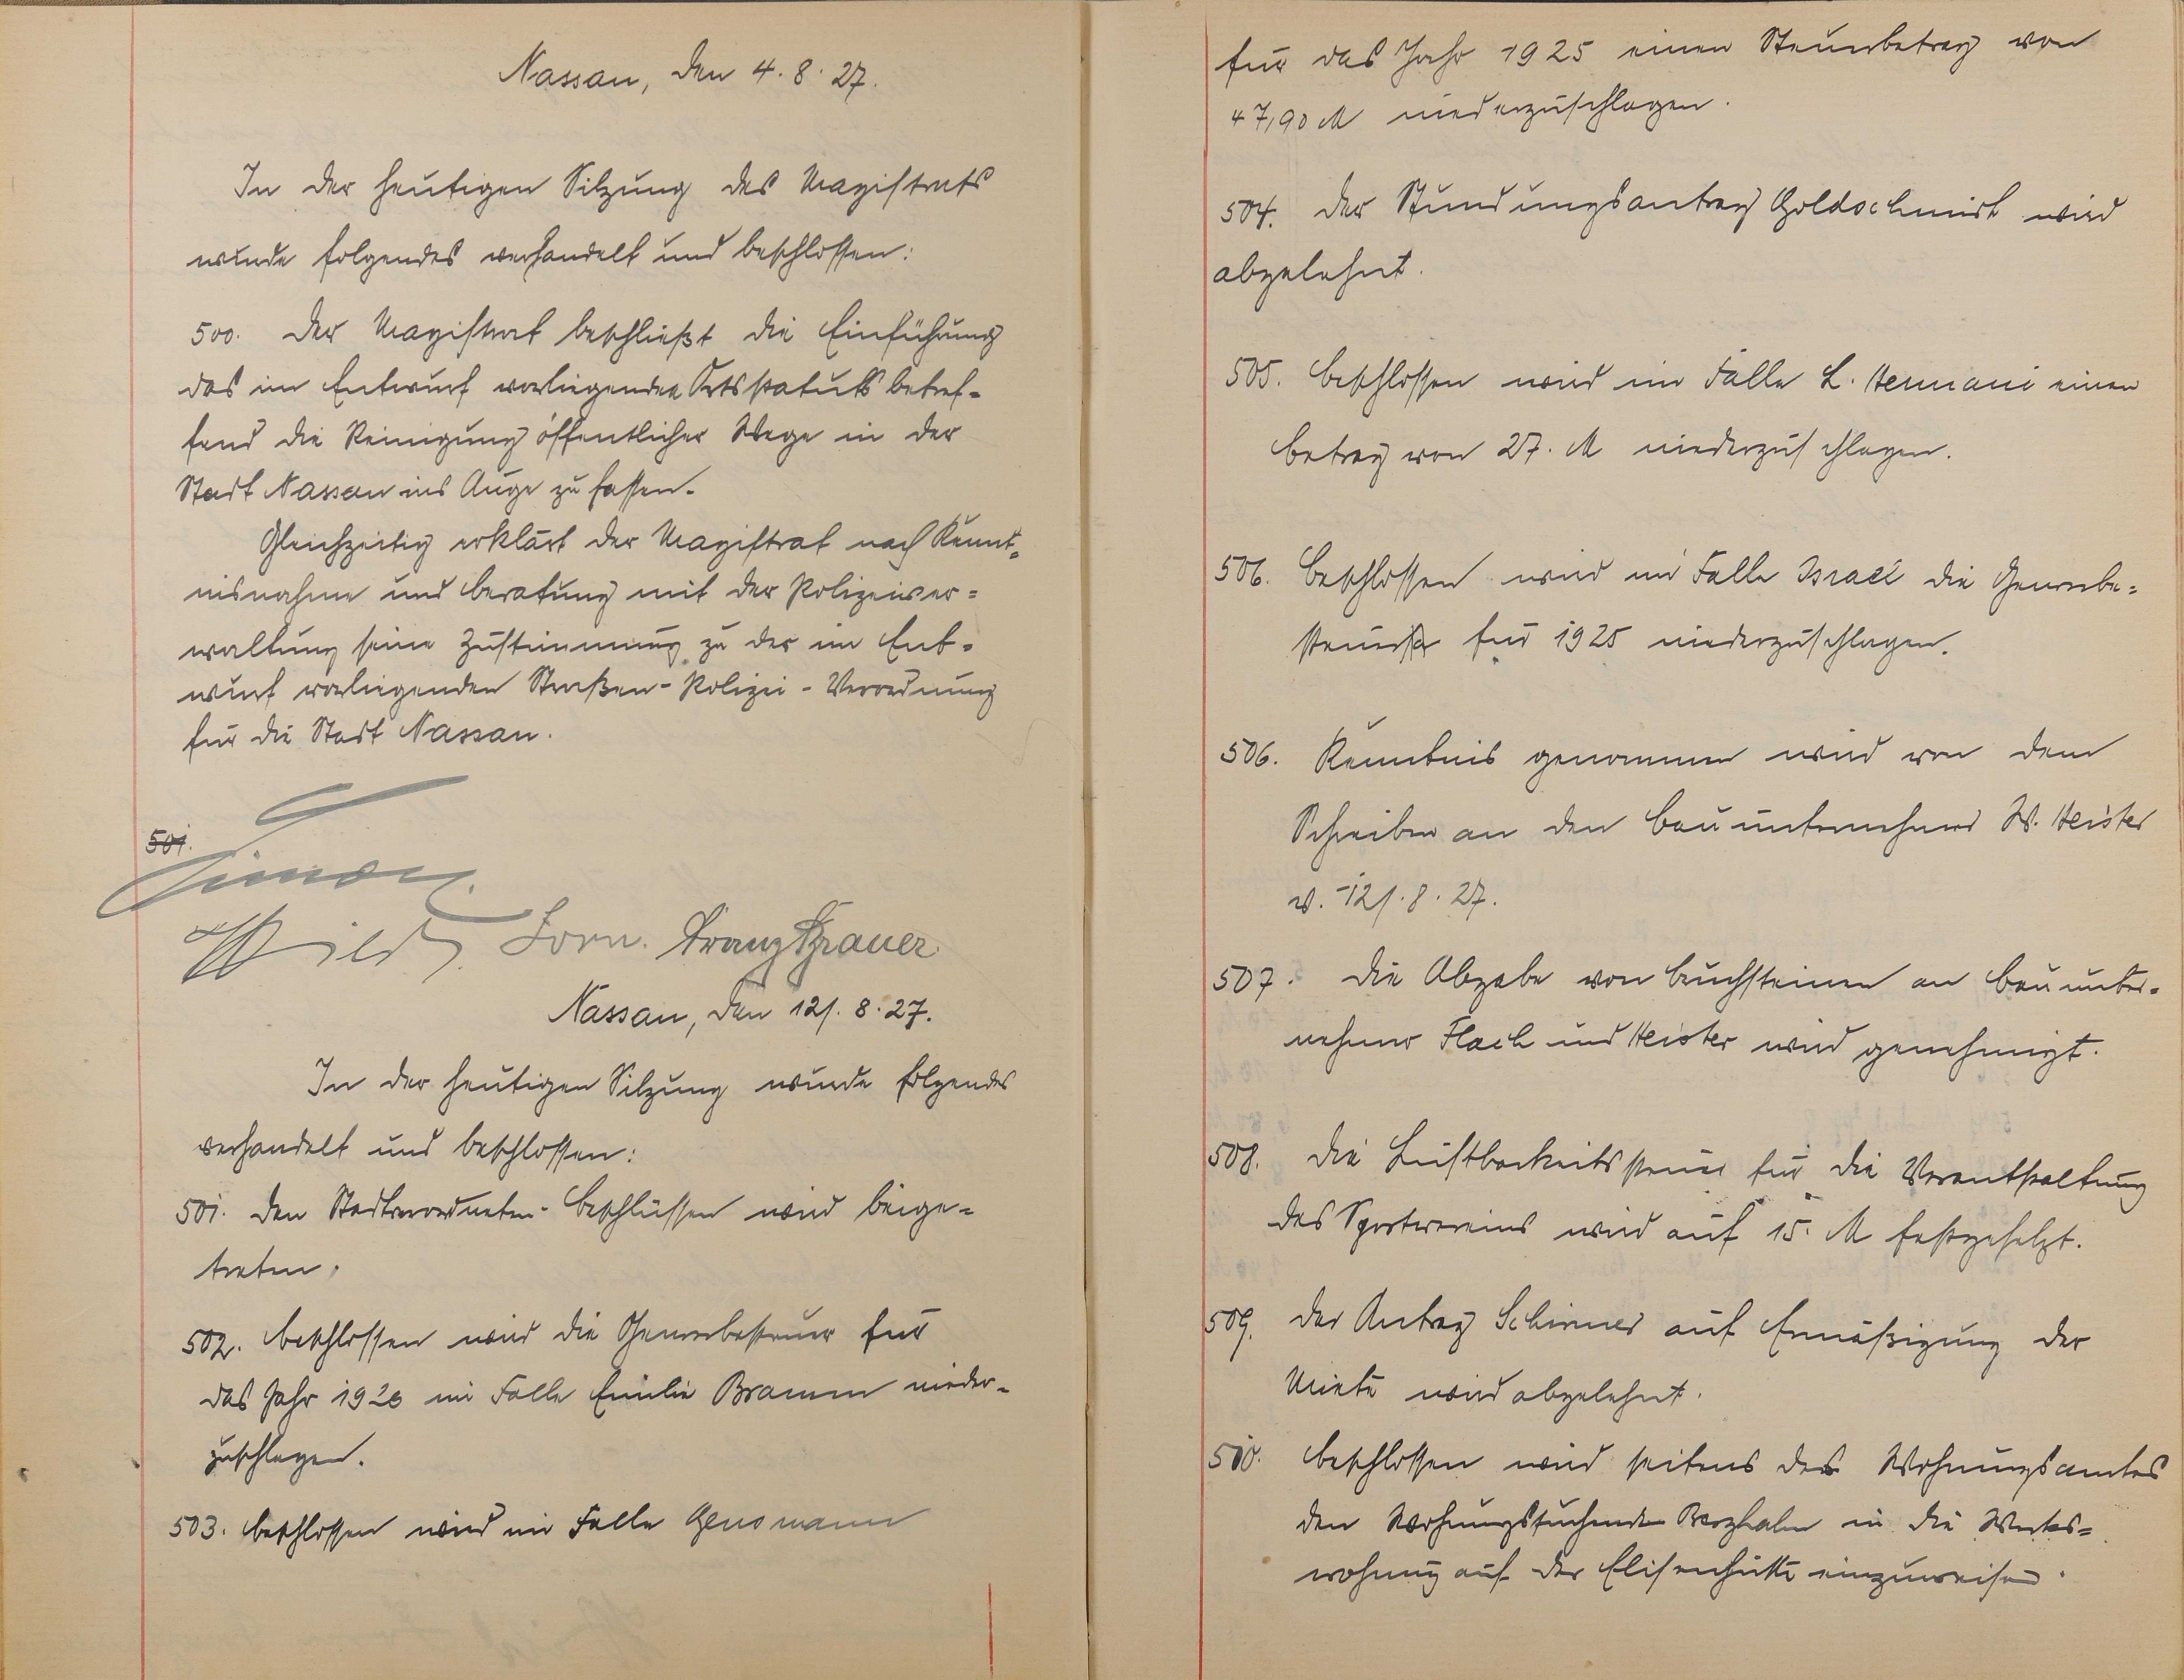 Nassau, den 4. 8. 27.
In der heutigen Sitzung des Magistrats
wurde folgendes verhandelt und beschlossen:
500. Der Magistrat beschließt die Einführung
das im Entwurf vorliegenden Ortsstatuts betref-
fend die Reinigung öffentlicher Wege in der
Stadt Nassau ins Auge zu fassen.
Gleichzeitig erklärt der Magistrat nach Kennt-
nisnahme und Beratung mit der Polizeiver=
waltung seine Zustimmung zu der im Ent-
wurf vorliegenden Straßen-Polizei-Verordnung
für die Stadt Nassau.
501.
Simon.
Wild. Horn. Franz Brauer
Nassau, den 12/. 8. 27.
In der heutigen Sitzung wurde folgendes
verhandelt und beschlossen:
501. Den Stadtverordneten-Beschlüssen wird beige-
treten.
502. Beschlossen wird die Gewerbesteuer für
das Jahr 1926 im Falle Emilie Bramm nieder-
zuschlagen.
503. Beschlossen wird im Falle Gensmann
für das Jahr 1925 einen Steuerbetrag von
47,90 M niederzuschlagen.
504. Der Stundungsantrag Goldschmidt wird
abgelehnt.
505. Beschlossen wird im Falle L. Hermani einen
Betrag von 27. M niederzuschlagen.
506. Beschlossen wird im Falle Israel die Gewerbe=
steuer für 1925 niederzuschlagen.
506. Kenntnis genommen wird von dem
Schreiben an den Bauunternehmer W. Heister
v. 12/. 8. 27.
507. Die Abgabe von Bruchsteinen an Bauunter-
nehmer Flach und Heister wird genehmigt.
508. Die Lustbarkeitssteuer für die Veranstaltung
des Sportvereins wird auf 15. M festgesetzt.
509. Der Antrag Schirmer auf Ermäßigung der
Miete wird abgelehnt.
510. Beschlossen wird seitens des Wohnungsamtes
den Wohnungssuchenden in die Werks=
wohnung auf der Elisenhütte einzuweisen.